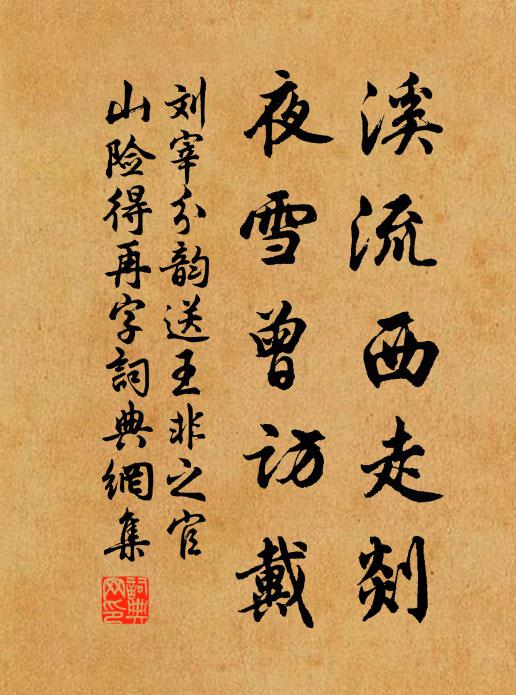 溪流西走剡
夜雪曾访戴
刘宰分韵送王非之官
山险得再字詞典網集
詞典网印